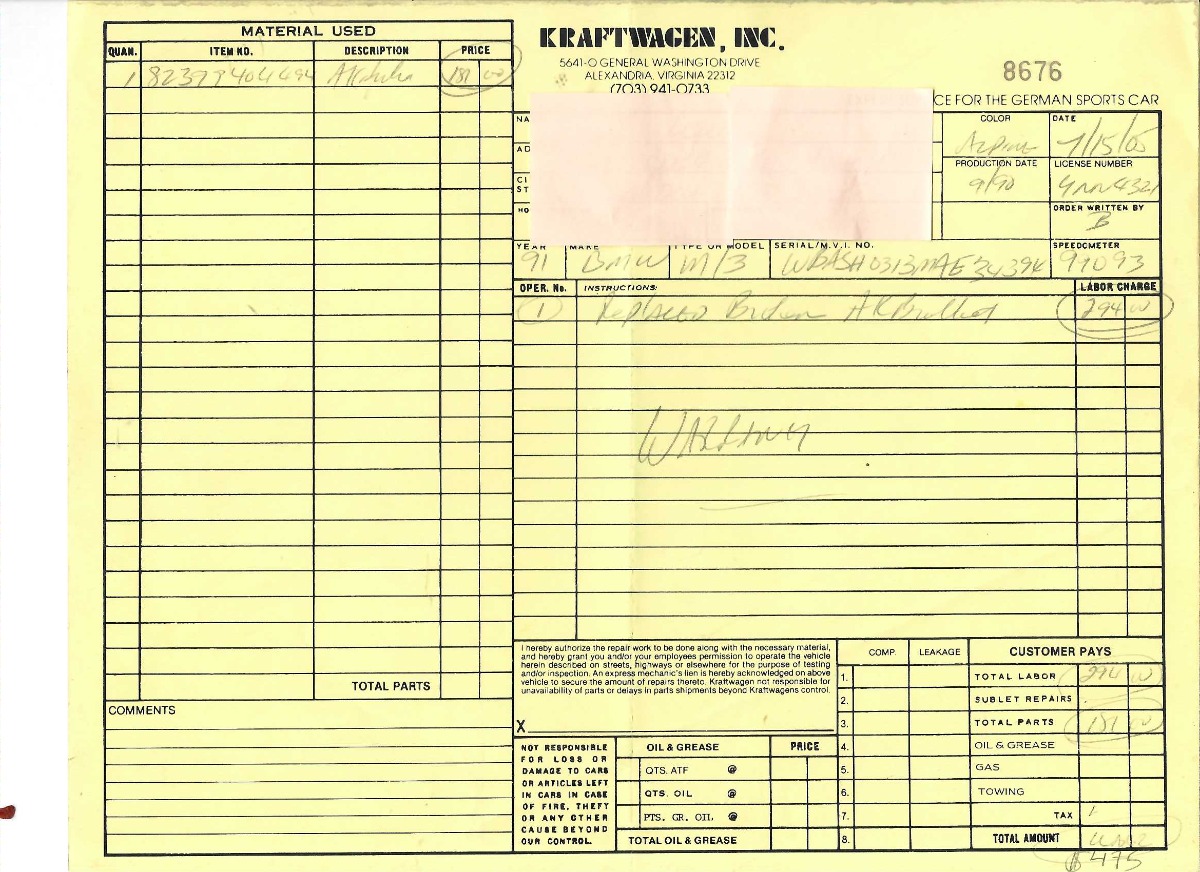 MATERIAL USED
QUAN. ITEM NO. DESCRIPTION PRICE
1 181 00
KRAFTWAGEN, INC.
5641-O GENERAL WASHINGTON DRIVE
ALEXANDRIA, VIRGINIA 22312
(703) 941-0733
8676
CE FOR THE GERMAN SPORTS CAR
NA
AD
CI
ST
HO
COLOR DATE
Alpine 7/15/05
PRODUCTION DATE LICENSE NUMBER
9/90
ORDER WRITTEN BY
B
YEAR MAKE TYPE OR MODEL SERIAL/M.V.I. NO. SPEEDOMETER
91 BMW M/3 97093
OPER. No. INSTRUCTIONS: LABOR CHARGE
1 Replaced Broken 294 00
Warranty
TOTAL PARTS
COMMENTS
I hereby authorize the repair work to be done along with the necessary material,
and hereby grant you and/or your employees permission to operate the vehicle
herein described on streets, highways or elsewhere for the purpose of testing
and/or inspection. An express mechanic's lien is hereby acknowledged on above
vehicle to secure the amount of repairs thereto. Kraftwagen not responsible for
unavailability of parts or delays in parts shipments beyond Kraftwagens control.
X
NOT RESPONSIBLE
FOR LOSS OR
DAMAGE TO CARS
OR ARTICLES LEFT
IN CARS IN CASE
OF FIRE, THEFT
OR ANY OTHER
CAUSE BEYOND
OUR CONTROL.
OIL & GREASE PRICE
QTS. ATF @
QTS. OIL @
PTS. GR. OIL @
TOTAL OIL & GREASE
COMP. LEAKAGE
1.
2.
3.
4.
5.
6.
7.
8.
CUSTOMER PAYS
TOTAL LABOR 294 00
SUBLET REPAIRS
TOTAL PARTS 181 00
OIL & GREASE
GAS
TOWING
TAX
TOTAL AMOUNT
$475